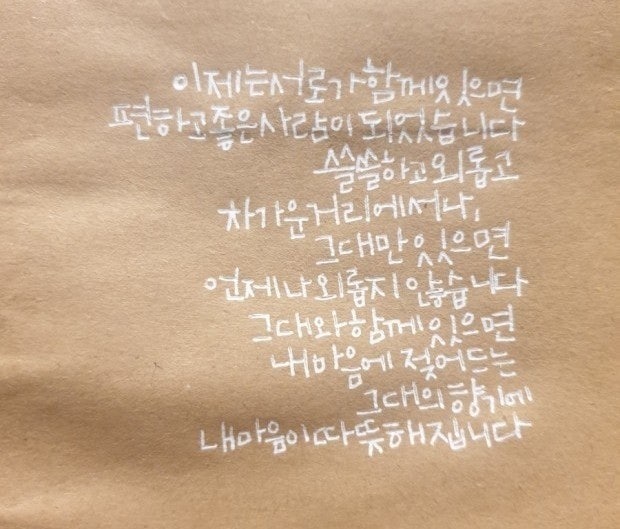 이제는서로가 함께있으면
편하고좋은사람이 되었습니다
쓸쓸하고외롭고
차가운거리에서나,
그대만 있으면
언제나외롭지 않습니다
그대와함께있으면
내마음에 젖어드는
그대의향기에
내마음이따뜻해집니다